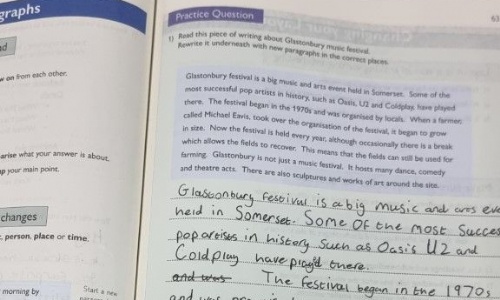 graphs
nd
w on from each other.
arise what your answer is about.
up your main point.
changes
person, place or time.
morning by
Start a new
Practice Question
63
1) Read this piece of writing about Glastonbury music festival.
Rewrite it underneath with new paragraphs in the correct places.
Glastonbury festival is a big music and arts event held in Somerset. Some of the
most successful pop artists in history, such as Oasis, U2 and Coldplay, have played
there. The festival began in the 1970s and was organised by locals. When a farmer,
called Michael Eavis, took over the organisation of the festival, it began to grow
in size. Now the festival is held every year, although occasionally there is a break
which allows the fields to recover. This means that the fields can still be used for
farming. Glastonbury is not just a music festival. It hosts many dance, comedy
and theatre acts. There are also sculptures and works of art around the site.
Glastonbury festival is a big music and arts eve
held in Somerset. Some of the most Succes
pop artises in history such as Oasis U2 and
Coldplay have play'd there.
and was The festival began in the 1970s